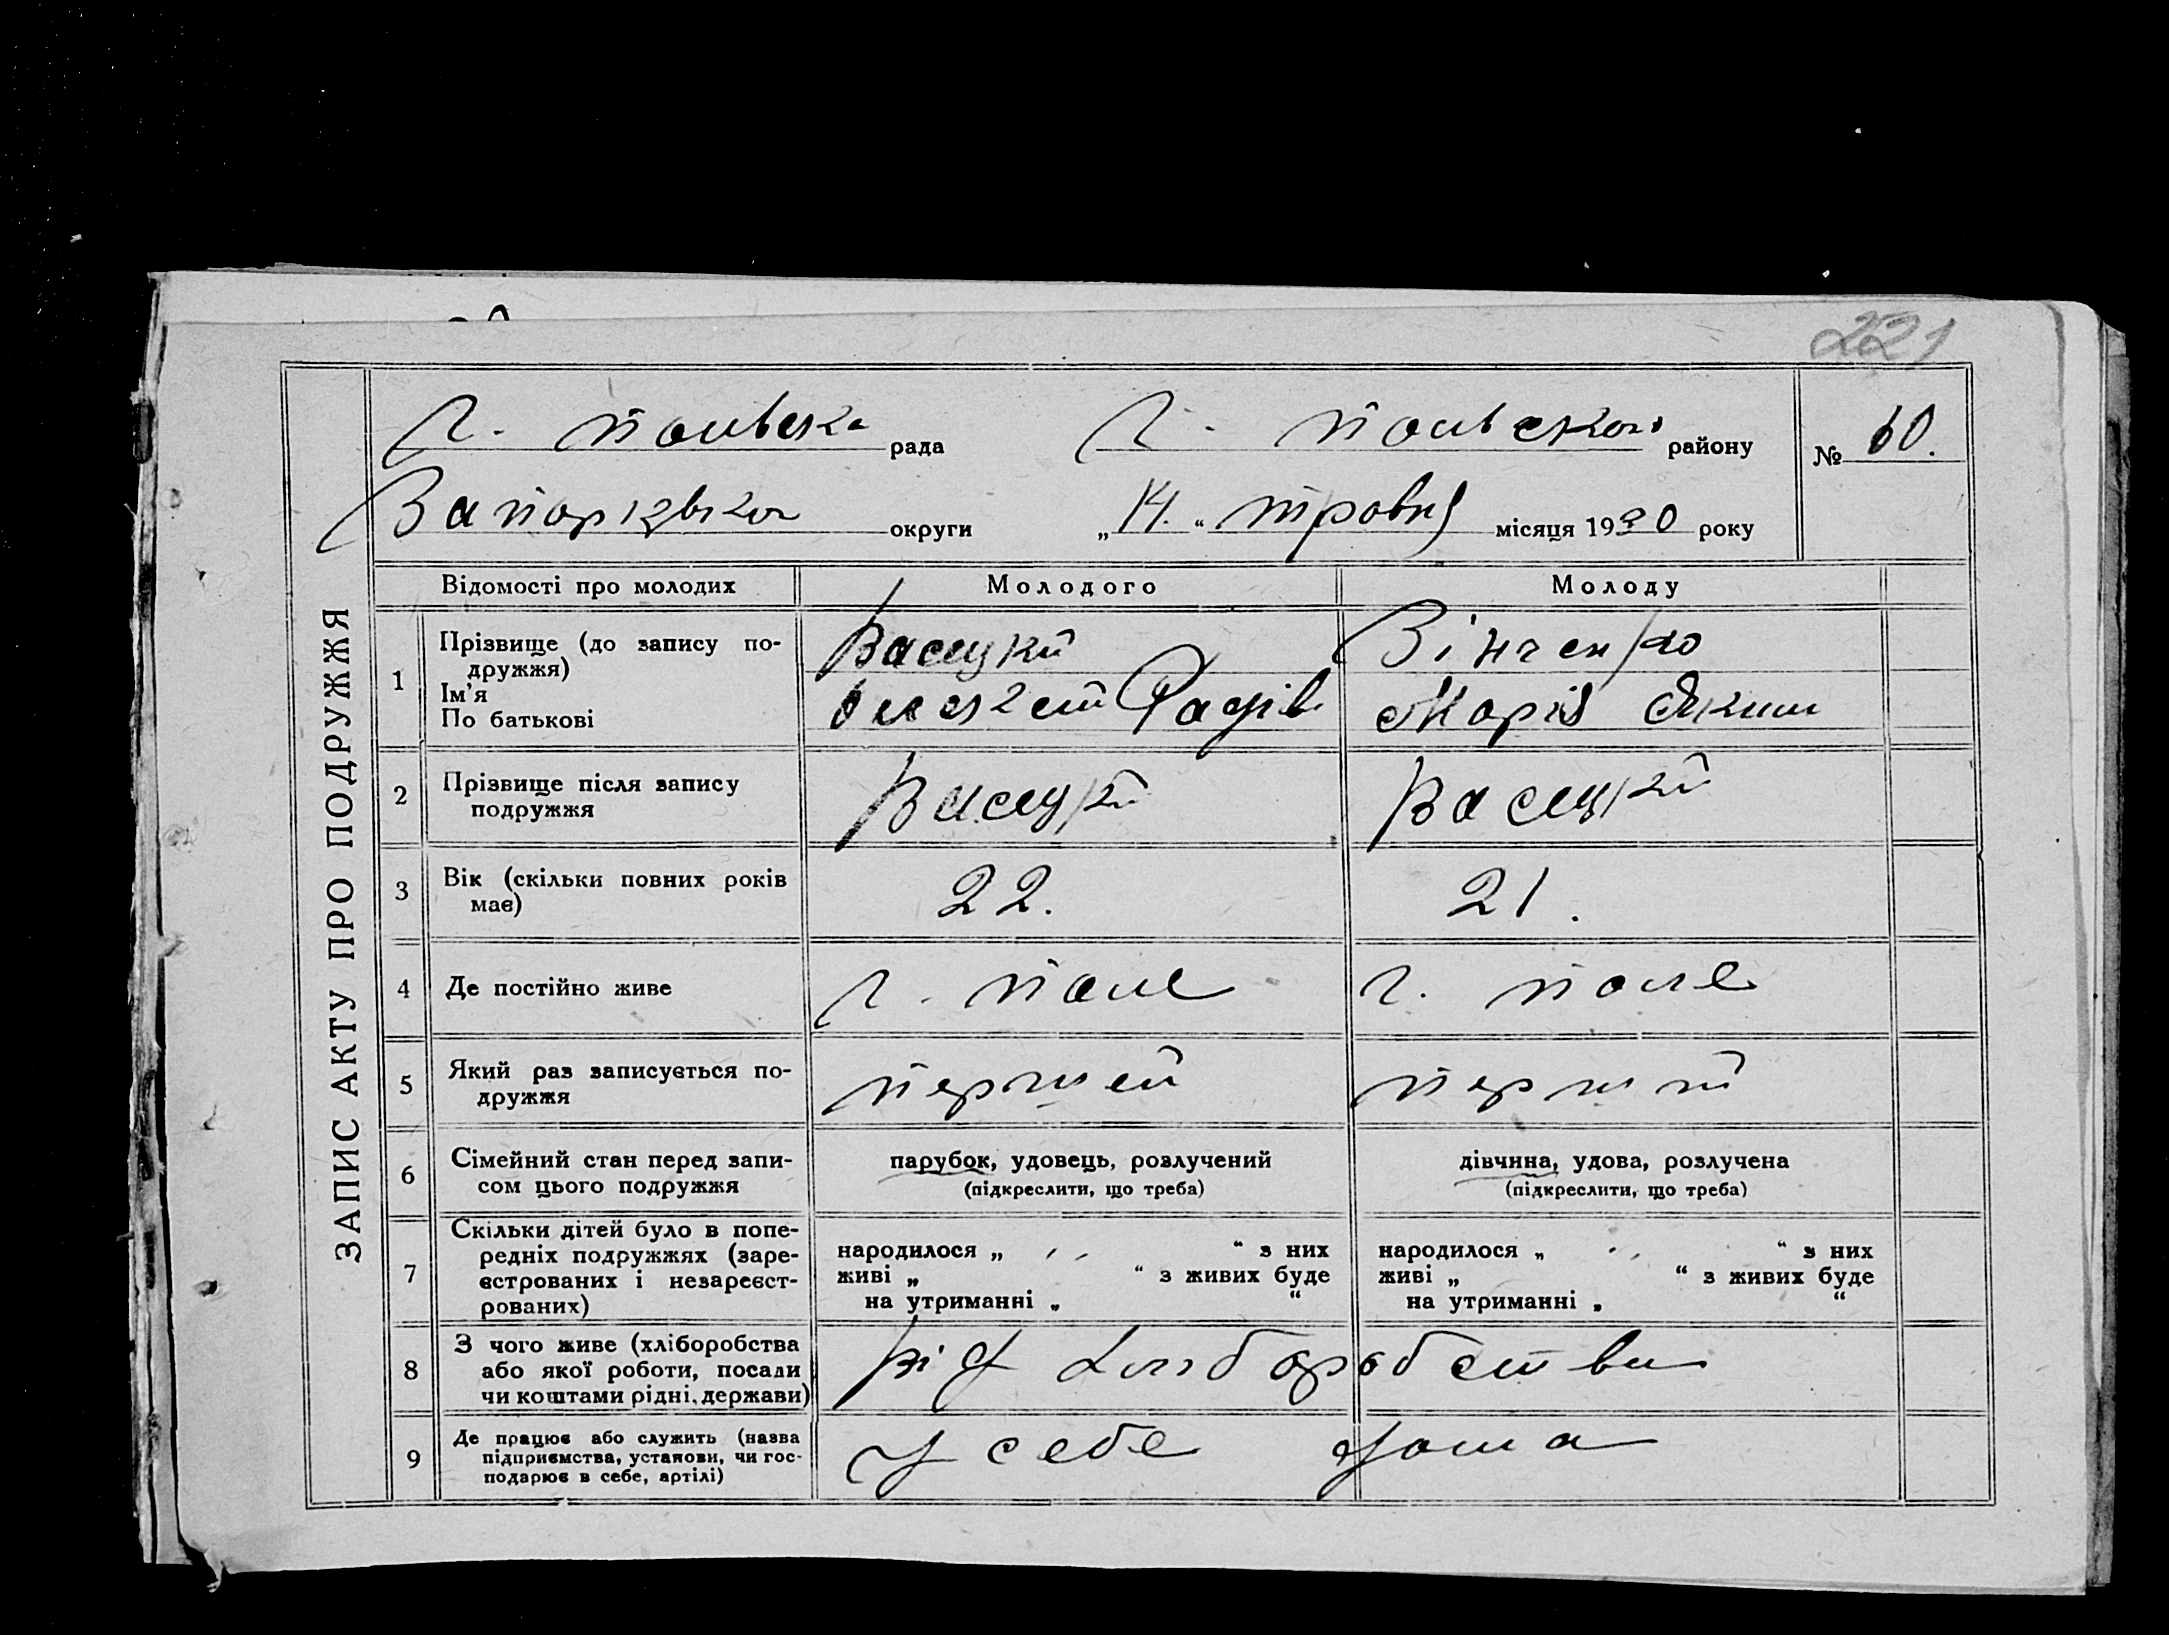 221
Г. Польська рада Г. Польського району № 60.
Запорізької округи „14.“ травня місяця 1930 року
ЗАПИС АКТУ ПРО ПОДРУЖЖЯ
Відомості про молодих Молодого Молоду
1 Прізвище (до запису по-
дружжя)
Ім'я
По батькові
Васецкий Зінченко
Фадіїв Марія Яким
2 Прізвище після запису
подружжя
Васецкий Васецкий
3 Вік (скільки повних років
має)
22. 21.
4 Де постійно живе Г. Поле Г. Поле
5 Який раз записується по-
дружжя
перший перший
6 Сімейний стан перед запи-
сом цього подружжя
парубок, удовець, розлучений
(підкреслити, що треба)
дівчина, удова, розлучена
(підкреслити, що треба)
7 Скільки дітей було в попе-
редніх подружжях (заре-
єстрованих і незареєст-
рованих)
народилося „ “ з них
живі „ “ з живих буде
на утриманні „ “
народилося „ “ з них
живі „ “ з живих буде
на утриманні „ “
8 З чого живе (хліборобства
або якої роботи, посади
чи коштами рідні, держави)
від хліборобства
9 Де працює або служить (назва
підприємства, установи, чи гос-
подарює в себе, артілі)
у себе дома